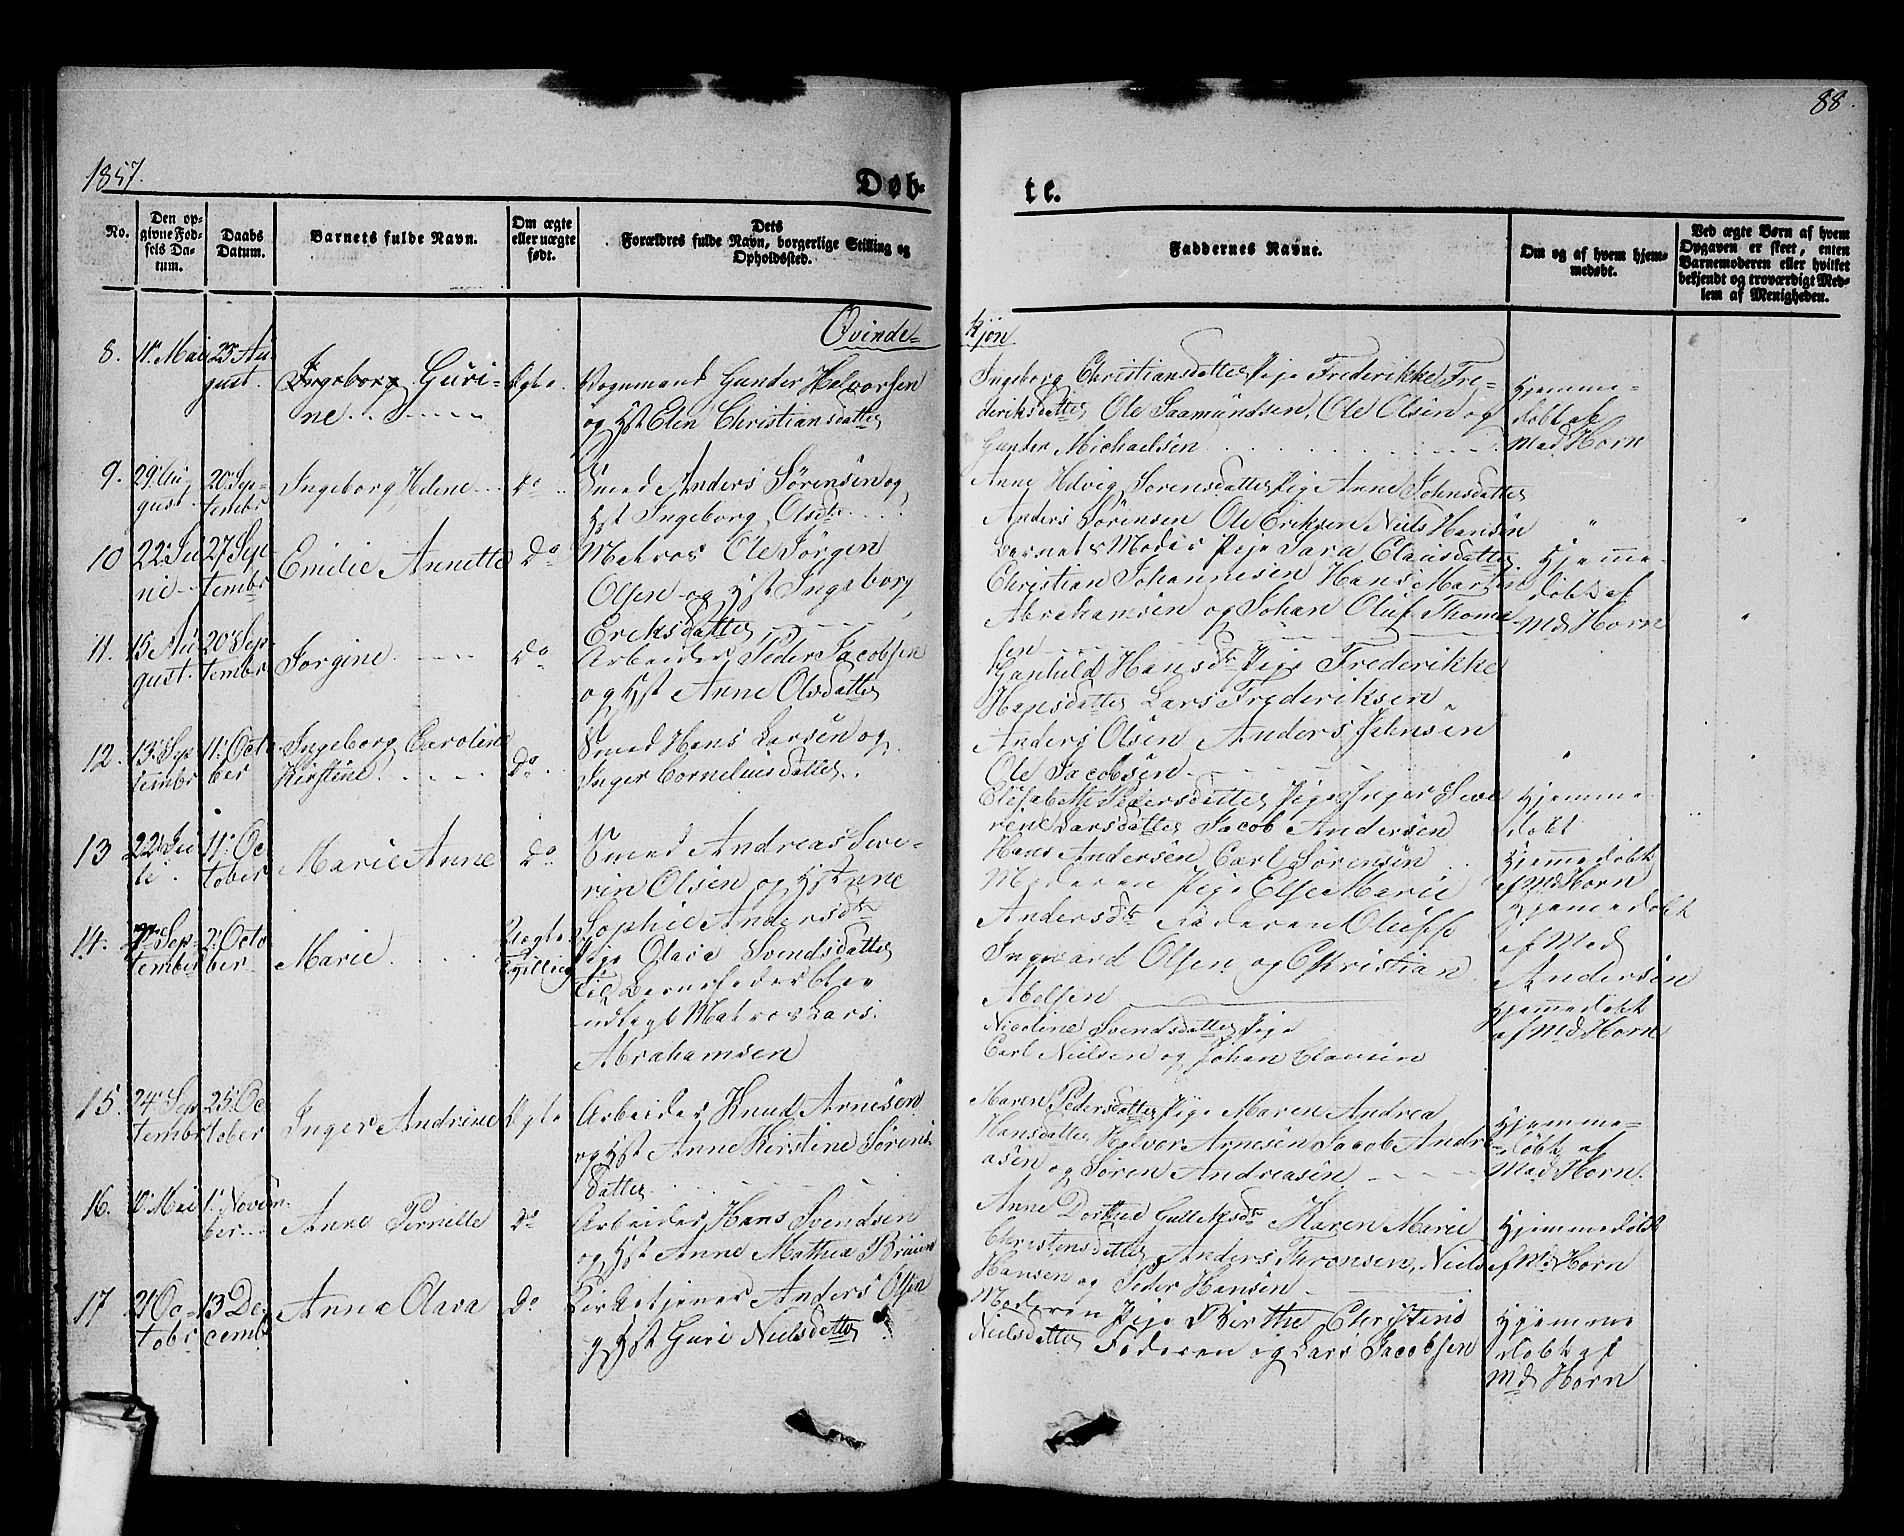 88.
1857.
Døb-
te.
No.
Den op-
givne Fød-
sels Da-
tum.
Daabs
Datum.
Barnets fulde Navn.
Om ægte
eller uægte
født.
Dets
Forældres fulde Navn, borgerlige Stilling og
Opholdssted.
Faddernes Navne.
Om og af hvem hjem-
medøbt.
Ved ægte Børn af hvem
Opgaven er skeet, enten
Barnemoderen eller hvilket
bekjendt og troværdigt Med-
lem af Menigheden.
Qvinde-
kjøn
8. 11te Mai 23de Au-
gust.
Ingeborg Guri-
ne
Ægte
Vognmand Gunder Halvorsen
og Hst Elen Christiansdatter
Ingeborg Christiansdatter Pige Frederikke Fre-
deriksdatter Ole Saamundsen, Ole Olsen og
Gunder Michaelsen
Hjemme-
døbt af
Mad Horn
9. 29 Au-
gust
20 Sep-
tembr
Ingeborg Helene
Do
Smed Anders Sørensen og
Hst Ingeborg Olsdtr
Anne Hedvig Sørensdatter Pige Anne Johnsdatter
Anders Sørensen Ole Eriksen Niels Hansen
10 22 Ju-
ni
27 Sep-
tembr
Emilie Annette
Do
Matros Ole Jørgen
Olsen og Hst Ingeborg
Eriksdatter
Barnets Moder Pige Sara Clausdatter
Christian Johannesen Hans Martin
Abrahamsen og Johan Oluf Thome-
sen
Hjemme-
døbt af
Md Horn
11. 15 Au-
gust.
20 Sep-
tembr
Jorgine
Do
Arbeider Peder Jacobsen
og Hst Anne Olsdatter
Gunhild Hansdtr Pige Frederikke
Hansdatter Lars Frederiksen
Anders Olsen Anders Johnsen
Ole Jacobsen
12. 13 Sep
tembr
11 Octo
ber
Ingeborg Caroline
Kirstine
Do
Smed Hans Larsen og
Inger Corneliusdatter
Elisabeth Pedersdatter Pige Inger Seve
rine Larsdatter Jacob Andersen
Hans Andersen Carl Sørensen
Hjemme
døbt
13 22 Ju
li
11 Oc
tober
Marie Anne
Do
Smed Andreas Seve-
rin Olsen og Hst Ane
Sophie Andersdtr
Moderen Pige Else Marie
Andersdtr Faderen
Ingvard Olsen og Christian
Abelsen
Hjemmedøbt
af Md Horn
14. Sep-
tember
2 Octo
ber
Marie
Uægte
Pige Olava Svendsdatter
til Barnefader blev
udlagt Matros Lars
Abrahamsen
Nicoline Svendsdatter Pige
Carl Nielsen og Johan Clausen
Hjemmedøbt
af Mad
Andersen
Hjemmedøbt
af Md Horn
15. 24 Sep
tembr
25 Oc
tober
Inger Andrine
Ægte
Arbeider Knud Arnesen
og Hst Anne Kirstine Sørens
datter
Maren Pedersdatter Pige Maren Andrea
Hansdatter Halvor Arnesen Jacob Andre-
asen og Søren Andreasen
Hjemme-
døbt af
Mad Horn.
16. 10 Mai
1 Novem
ber
Anne Pernille
Do
Arbeider Hans Svendsen
og Hst Anne Mathea Bruun
Anne Dorthea Gulleksdr Karen Marie
Christensdatter Anders Thronsen, Niels
Hansen og Peder Hansen
Hjemmedøbt
af Md Horn
17 21 Oc-
tobr
13 De-
cembr
Anne Olava
Do
Kirketjener Anders Olsen
og Hst Guri Nielsdatter
Moderen Pige Birthe Christine
Nielsdatter Faderen og Lars Jacobsen
Hjemme
døbt af
Md Horn